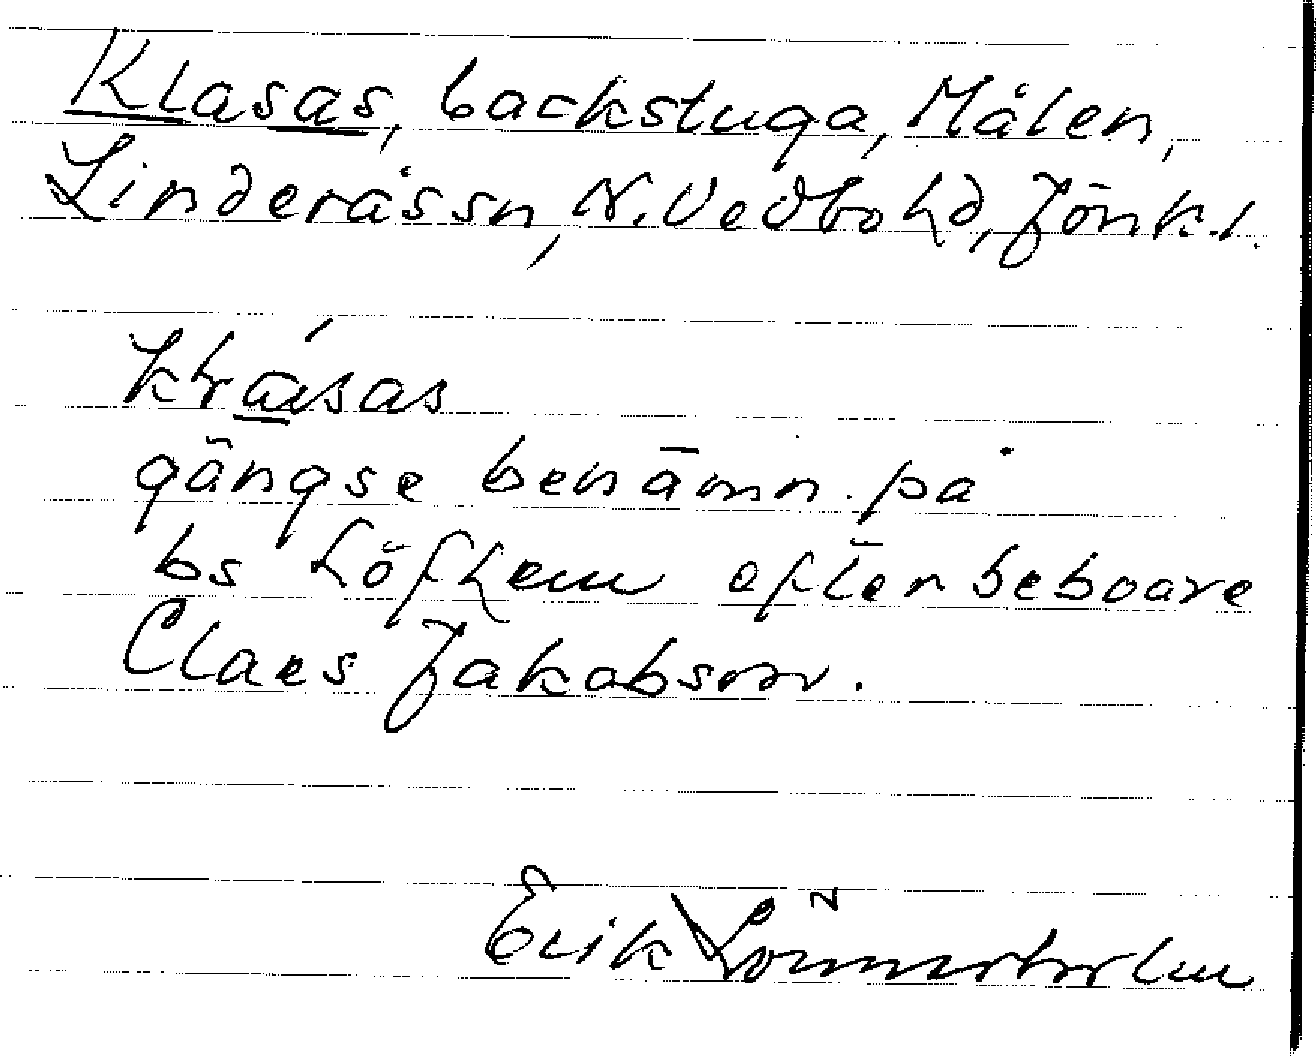 Klasas, backstuga, Målen,
Linderås sn, N. Vedbo hd, Jönk. l.
kráisas
gängse benämn. på
bs Löfhem efter beboare
Claes Jakobson.
Erik